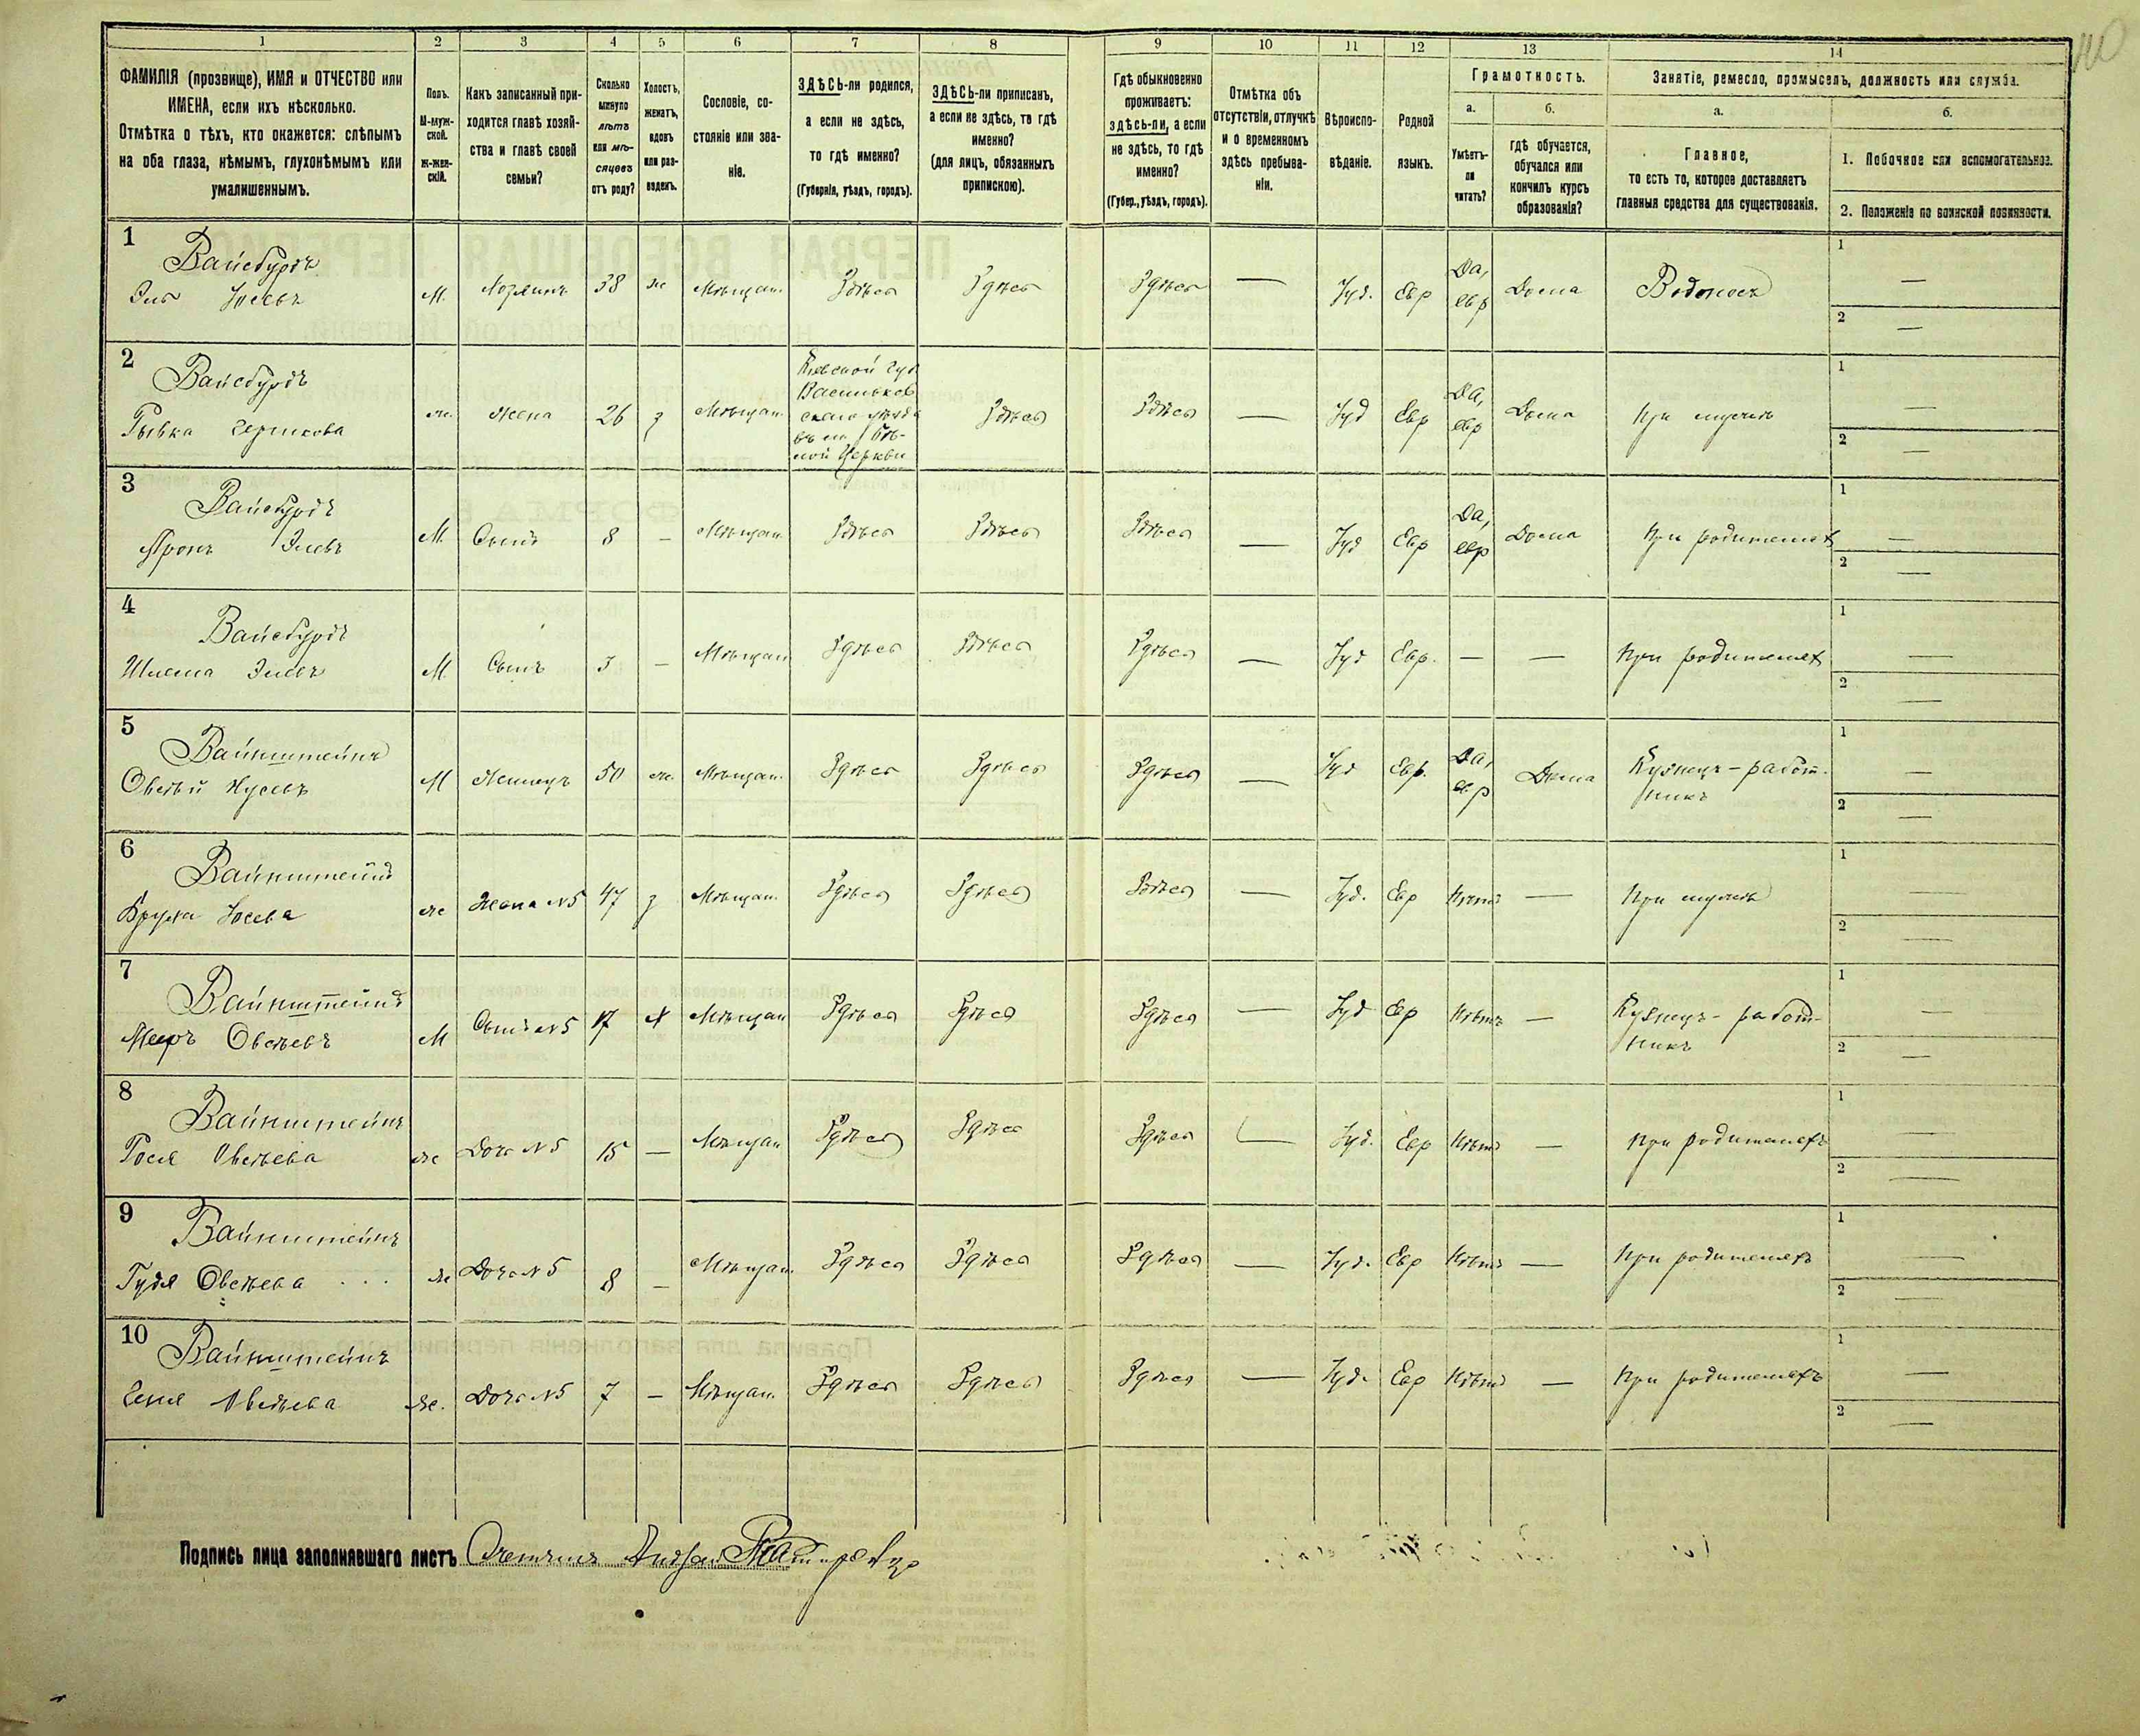 1 2 3 4 5 6 7 8 9 10 11 12 13 14
ФАМИЛІЯ (прозвище), ИМЯ и ОТЧЕСТВО или
ИМЕНА, если ихъ нѣсколько.
Отмѣтка о тѣхъ, кто окажется: слѣпымъ
на оба глаза, нѣмымъ, глухонѣмымъ или
умалишеннымъ.
Полъ.
М-муж-
ской.
Ж-жен-
скій.
Какъ записанный при-
ходится главѣ хозяй-
ства и главѣ своей
семьи?
Сколько
минуло
лѣтъ
или мѣ-
сяцевъ
отъ роду?
Холостъ,
женатъ,
вдовъ
или раз-
веденъ.
Сословіе, со-
стояніе или зва-
ніе.
ЗДѢСЬ-ли родился,
а если не здѣсь,
то гдѣ именно?
(Губернія, уѣздъ, городъ).
ЗДѢСЬ-ли приписанъ,
а если не здѣсь, то гдѣ
именно?
(для лицъ, обязанныхъ
припискою).
Гдѣ обыкновенно
проживаетъ:
здѣсь-ли, а если
не здѣсь, то гдѣ
именно?
(Губер., уѣздъ, городъ).
Отмѣтка объ
отсутствіи, отлучкѣ
и о временномъ
здѣсь пребыва-
ніи.
Вѣроиспо-
вѣданіе.
Родной
языкъ.
Грамотность.
а.
Умѣетъ-
ли
читать?
б.
гдѣ обучается,
обучался или
кончилъ курсъ
образованія?
Занятіе, ремесло, промыселъ, должность или служба.
а.
Главное,
то есть то, которое доставляетъ
главныя средства для существованія.
б.
1. Побочное или вспомогательное.
2. Положеніе по воинской повинности.
1
Вайсбурдъ
Эль Іосевъ М. Хозяинъ 38 ж Мѣщан. Здѣсь Здѣсь Здѣсь — Іуд. Евр Да, евр Дома Водоносъ 1 — 2 —
2
Вайсбурдъ
Рывка Гершкова ж. Жена 26 з Мѣщан. Кіевской губ
Васильков
скаго уѣзда
въ м. Бѣ-
лой Церкви
Здѣсь Здѣсь — Іуд Евр Да, евр Дома При мужѣ 1 — 2 —
3
Вайсбурдъ
Аронъ Элевъ М. Сынъ 8 — Мѣщан. Здѣсь Здѣсь Здѣсь — Іуд Евр Да, евр Дома При родителях 1 — 2 —
4
Вайсбурдъ
Шлема Элевъ М. Сынъ 3 — Мѣщан Здѣсь Здѣсь Здѣсь — Іуд Евр. — — При родителях 1 — 2 —
5
Вайнштейнъ
Овсѣй М Жилецъ 50 ж. Мѣщан. Здѣсь Здѣсь Здѣсь — Іуд Евр. Да, евр Дома Кузнецъ - работ-
никъ
1 — 2 —
6
Вайнштейнъ
Іосева ж Жена №5 47 з Мѣщан. Здѣсь Здѣсь Здѣсь — Іуд. Евр Нѣтъ — При мужѣ 1 — 2 —
7
Вайнштейнъ
Мееръ Овсѣевъ М Сынъ №5 17 х Мѣщан Здѣсь Здѣсь Здѣсь — Іуд Евр Нѣтъ — Кузнецъ - работ-
никъ
1 — 2 —
8
Вайнштейнъ
Рося Овсѣева ж Дочь №5 15 — Мѣщан Здѣсь Здѣсь Здѣсь — Іуд. Евр Нѣтъ — При родителяхъ 1 — 2 —
9
Вайнштейнъ
Гудя Овсѣева ж Дочь №5 8 — Мѣщан. Здѣсь Здѣсь Здѣсь — Іуд. Евр Нѣтъ — При родителяхъ 1 — 2 —
10
Вайнштейнъ
Геня Овсѣева ж. Дочь №5 7 — Мѣщан. Здѣсь Здѣсь Здѣсь — Іуд. Евр Нѣтъ — При родителяхъ 1 — 2 —
Подпись лица заполнявшаго листъ Счетчикъ